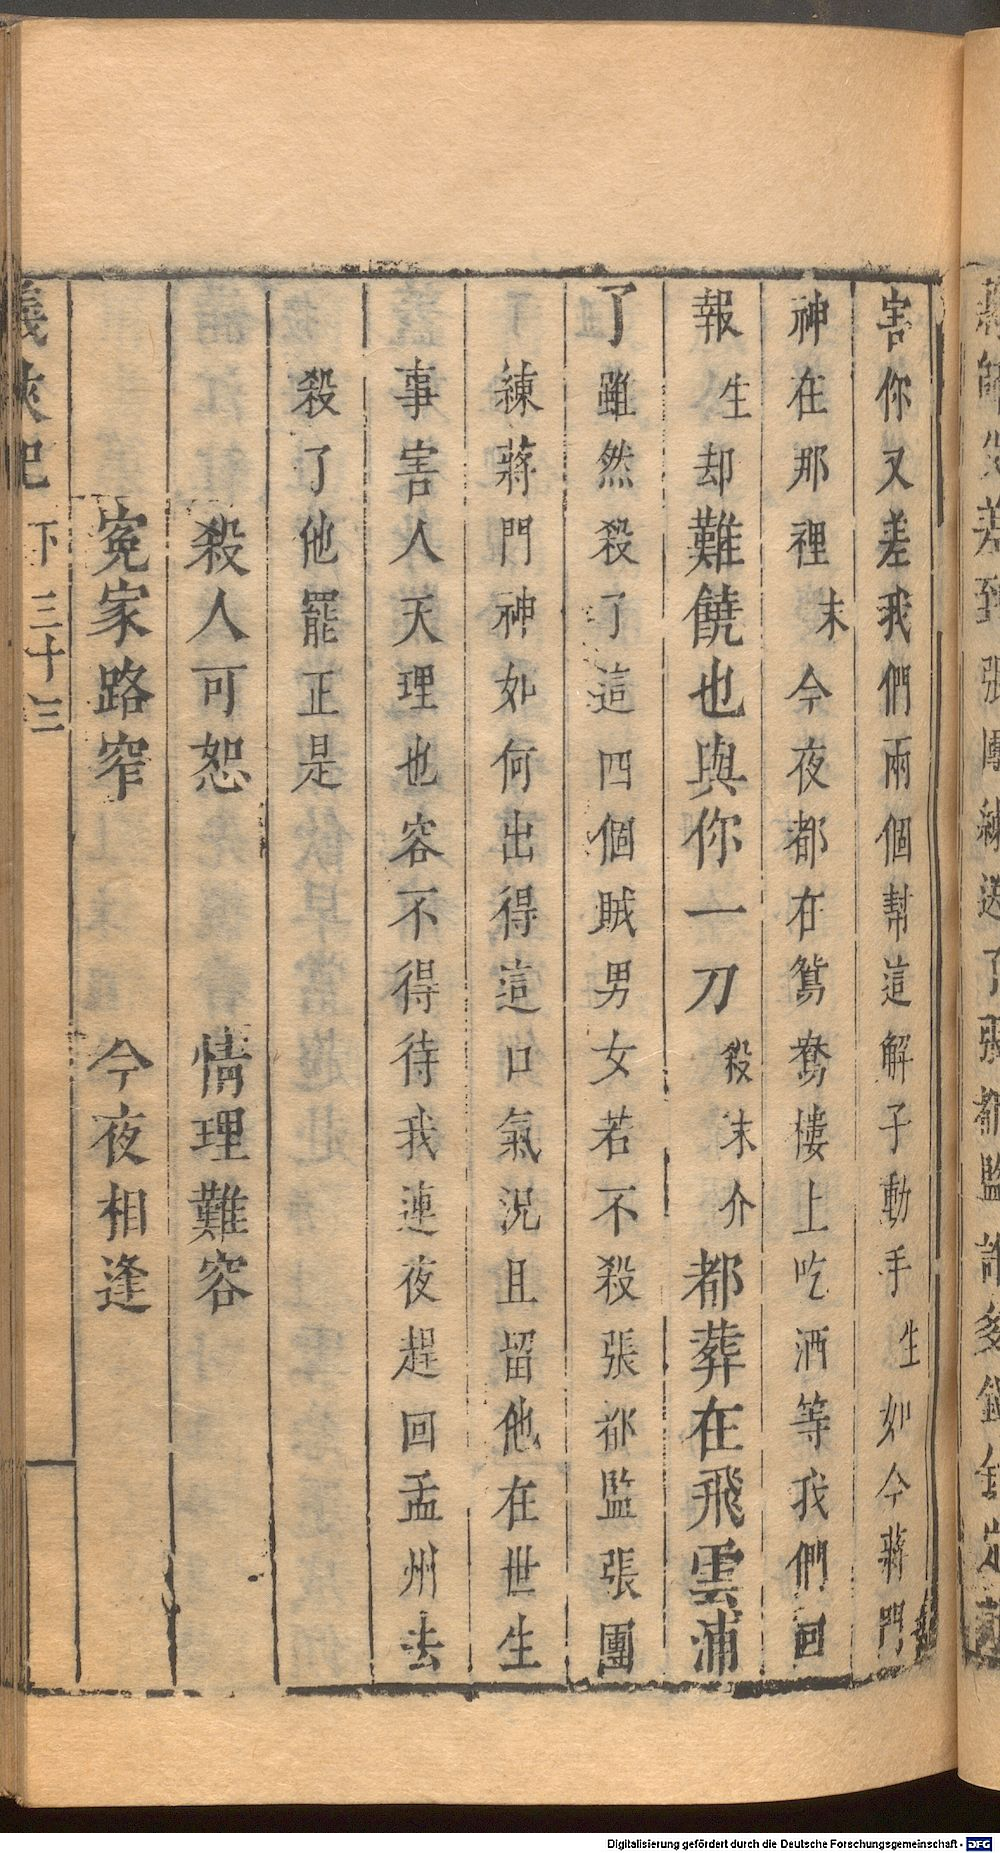 害你又差我們兩個幫這解子動手生如今蔣門
神在那裡末今夜都在鴛鴦樓上吃酒等我們回
報生却難饒也與你一刀殺末介都葬在飛雲浦
了雖然殺了這四個賊男女若不殺張都監張團
練蔣門神如何出得這口氣況且留他在世生
事害人天理也容不得待我連夜趕回孟州去
殺了他罷正是
殺人可恕 情理難容
冤家路窄 今夜相逢
義俠記 下 三十三
Digitalisierung gefördert durch die Deutsche Forschungsgemeinschaft - DFG